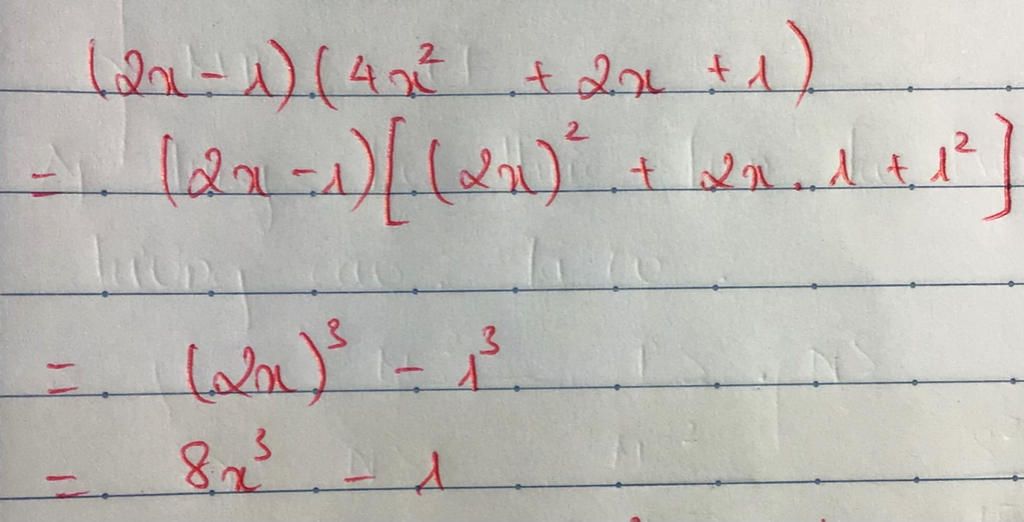 (2x - 1)(4x² + 2x + 1)
= (2x - 1)[(2x)² + 2x . 1 + 1²]
= (2x)³ - 1³
= 8x³ - 1